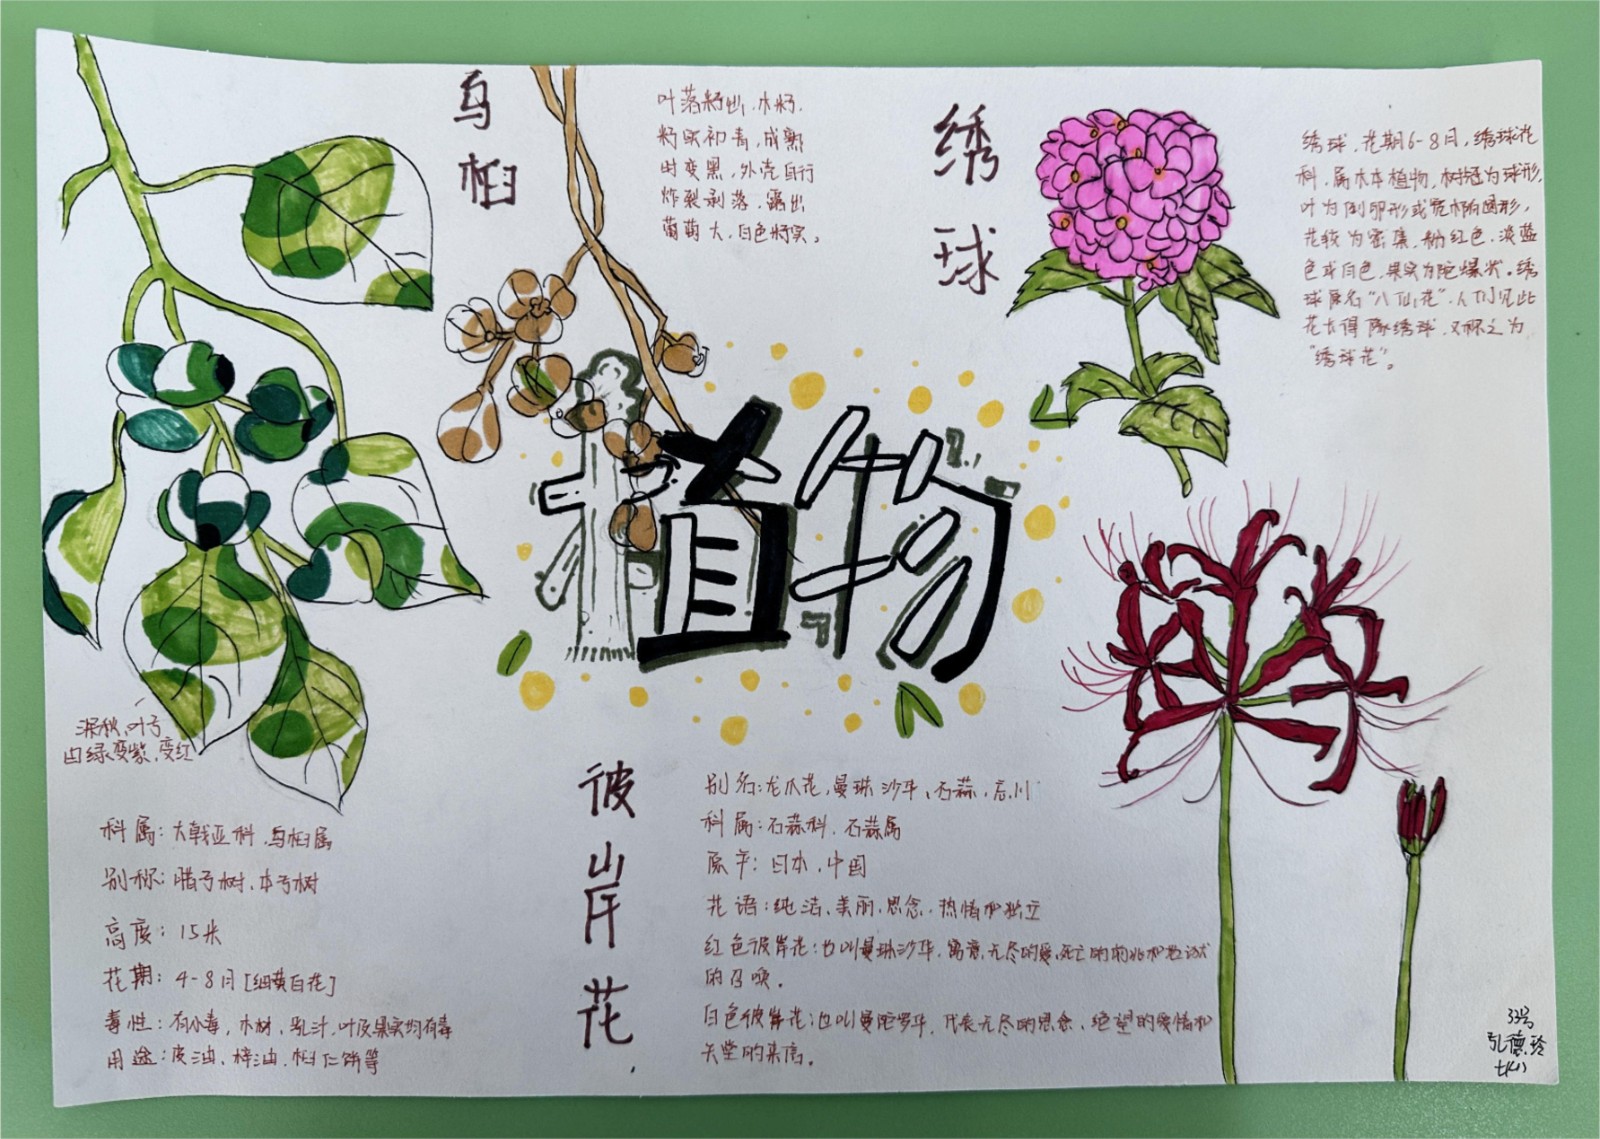 乌桕
叶落籽出,木籽.
籽实初青,成熟
时变黑,外壳自行
炸裂剥落,露出
葡萄大,白色籽实。
绣球
绣球,花期6-8月,绣球花
科,属木本植物,树冠为球形,
叶为倒卵形或宽椭圆形,
花较为密集,粉红色,淡蓝
色或白色,果实为陀爆状。绣
球原名“八仙花”,人们见此
花长得像绣球,又称之为
“绣球花”。
植物
深秋,叶子
由绿变紫,变红
科属:大戟亚科,乌桕属
别称:腊子树、木子树
高度:15米
花期:4-8月[细黄白花]
毒性:有小毒,木材,乳汁,叶及果实均有毒
用途:皮油、梓油、桕仁饼等
彼岸花.
别名:龙爪花,曼珠沙华、石蒜、忘川
科属:石蒜科、石蒜属
原产:日本,中国
花语:纯洁、美丽,思念,热情和独立
红色彼岸花:也叫曼珠沙华,寓意,无尽的爱,死亡的前兆和地狱
的召唤。
白色彼岸花:也叫曼陀罗华,代表无尽的思念,绝望的爱情和
天堂的来信。
33号
弘德.玲
七(1)